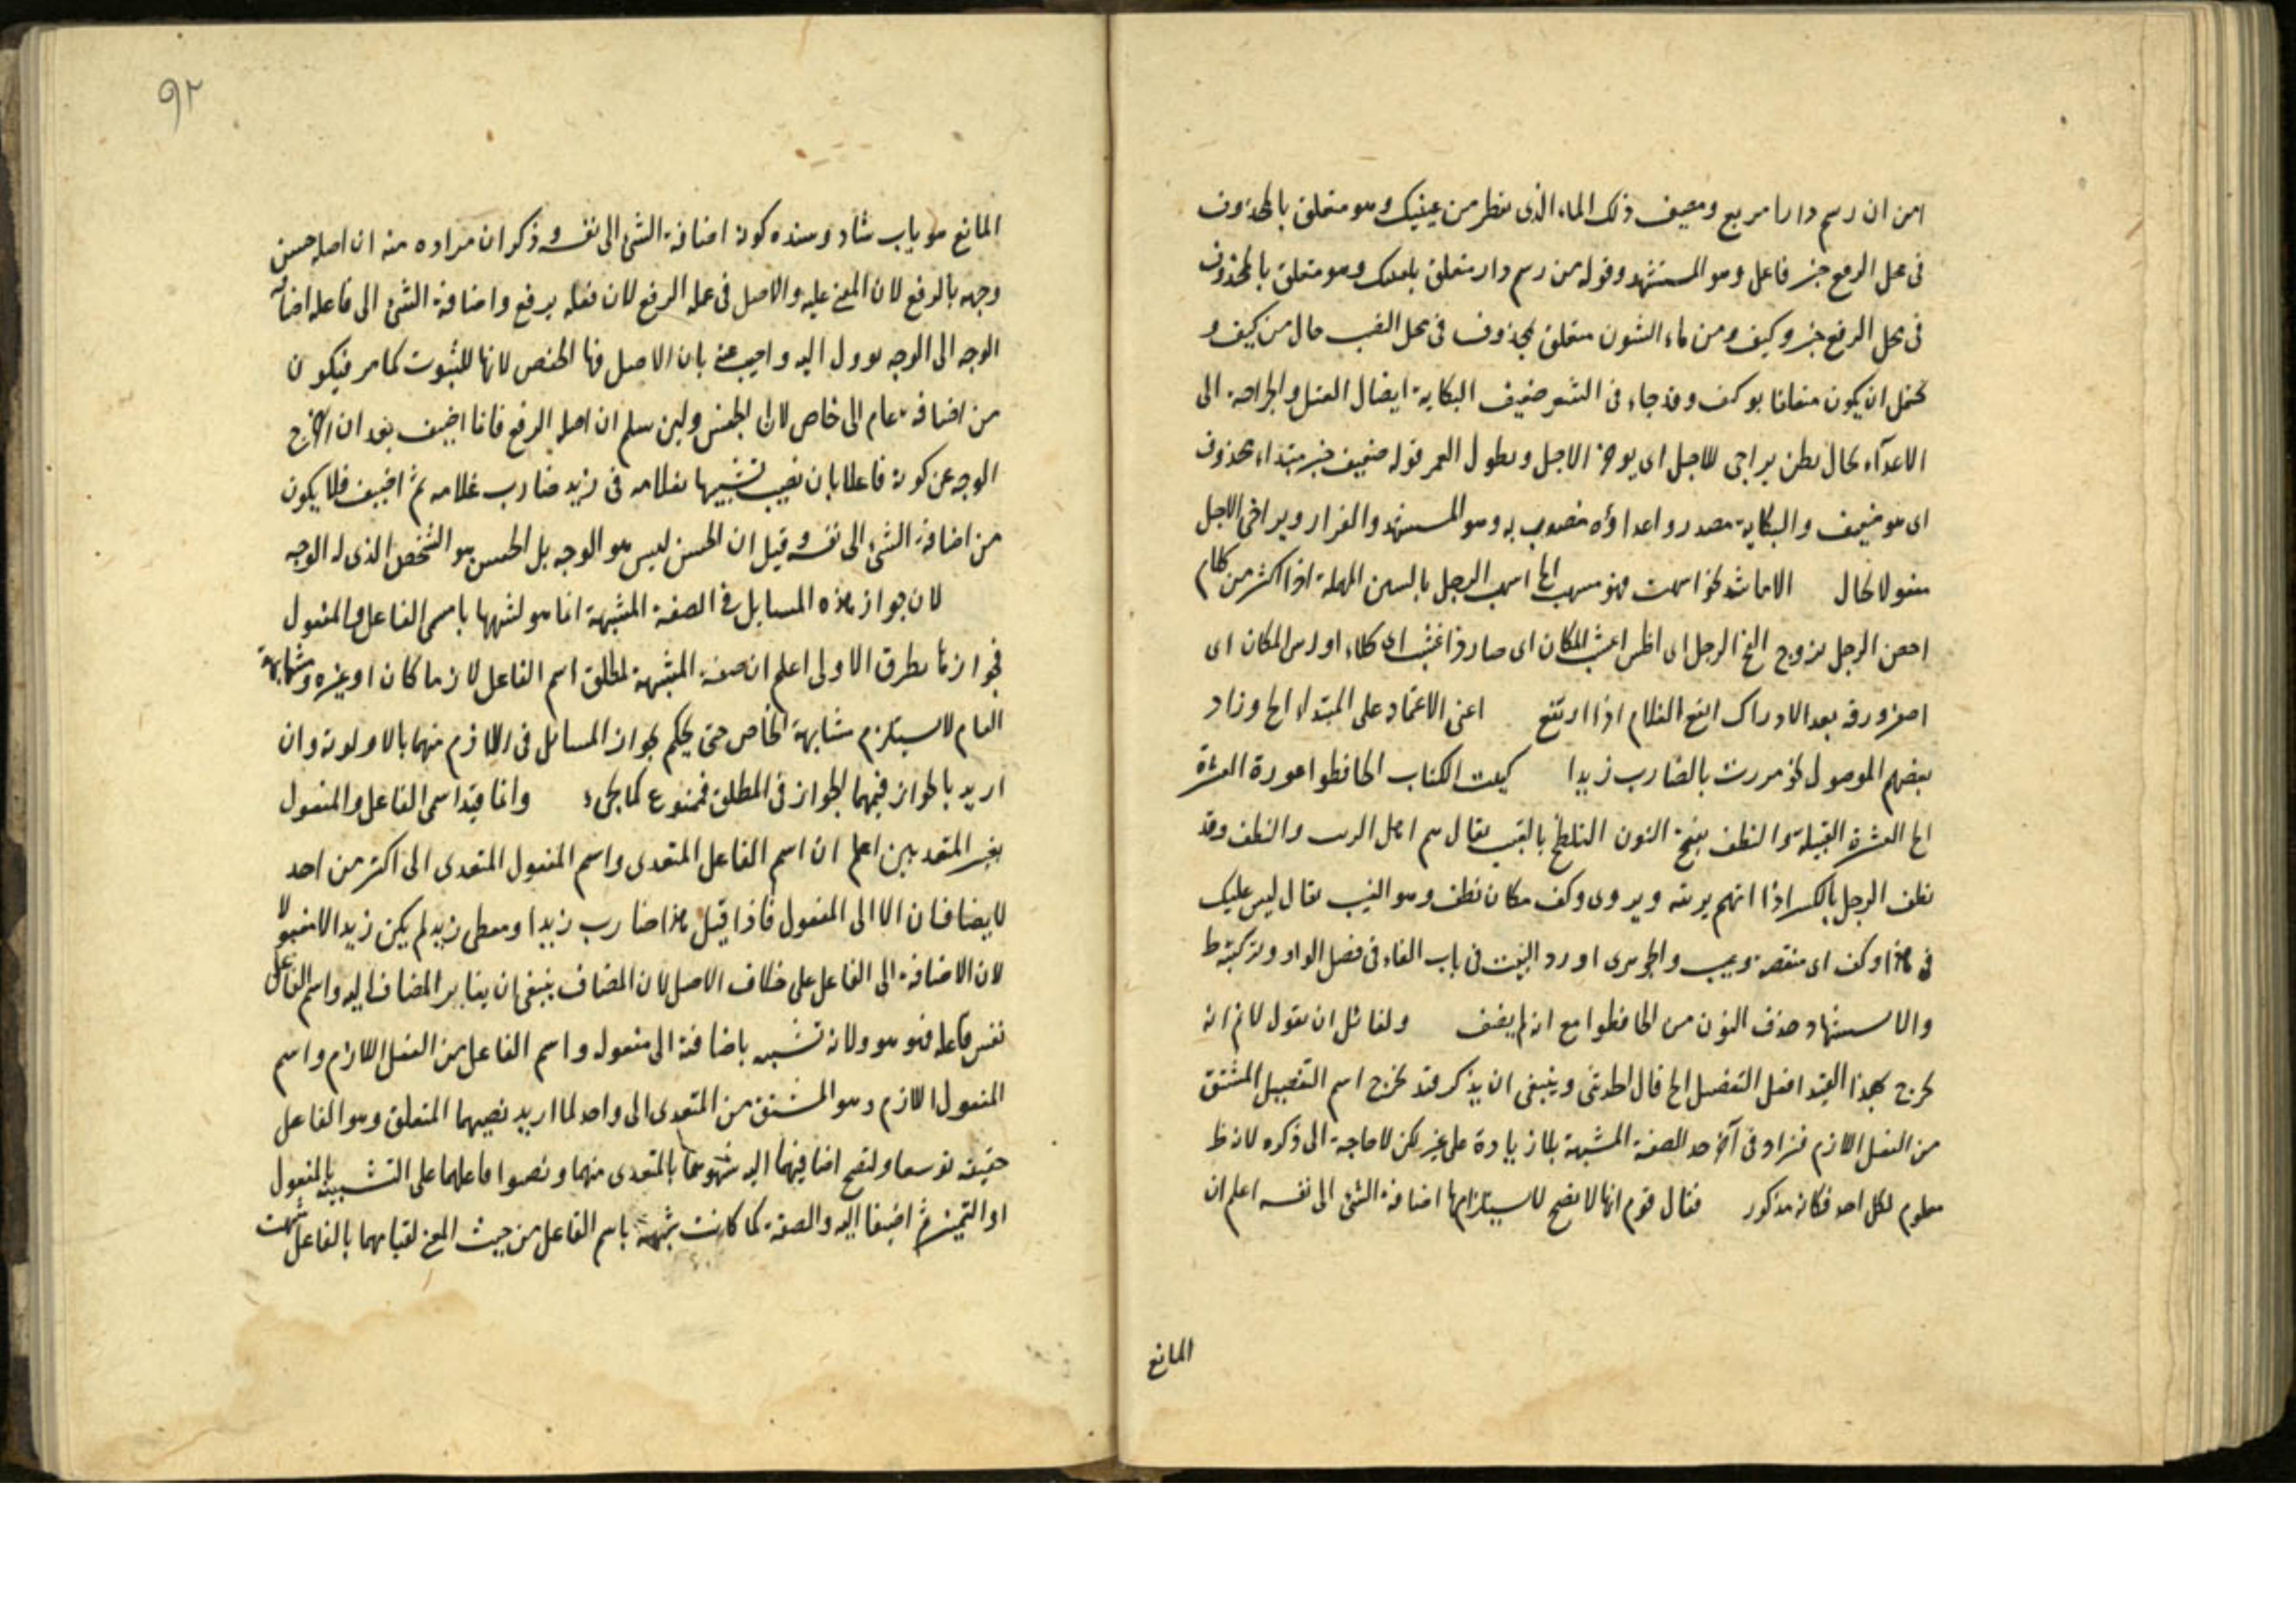 امن ان رسم دارا مربع ومصيف ذلك الماء الذى يقطر من عينيك وهو متعلق بالمحذوف
فى محل الرفع خبر فاعل وهو المستشهد وقوله من رسم دار متعلق بلعلك وهو متعلق بالمحذوف
فى محل الرفع خبر وكيف ومن ماء الشون متعلق بمحذوف فى محل النصب حال من كيف و
يحتمل ان يكون متعلقا بوكف وقد جاء فى الشعر ضعيف النكاية ايضال القتل والجراحة الى
الاعدآء يخال يظن يراخى للاجل اى يوخر الاجل ويطول العمر قوله ضعيف خبر مبتداء محذوف
اى هو ضعيف والنكاية مصدر واعداؤه منصوب به وهو المستشهد والفرار ويراخى الاجل
مفعولا يخال الا ما شذ نحو اسهبت فهو مسهب الخ اسهب الرجل بالسين المهملة اذا اكثر من كلام
احصن الرجل تزوج الفج الرجل اى افلس اعشب المكان اى صار ذا عشب اى كلاء اورس المكان اى
اصفر ورقه بعد الادراك ايفع الغلام اذا ارتفع اعنى الاعتماد على المبتداء الخ وزاد
بعضهم الموصول نحو مررت بالضارب زيدا كبيت الكتاب الحافظوا عورة العشيرة
الخ العشيرة القبيلة والنطف بفتح النون التلطخ بالعيب يقال هم اهل الريب والنطف وقد
نطف الرجل بالكسر اذا اتهم بريبة ويروى وكف مكان نطف وهو العيب يقال ليس عليك
فى هذا وكف اى منقصة وعيب والجوهرى اورد البيت فى باب الفاء فى فصل الواو وتركيبه ظ
والاستشهاد حذف النون من الحافظوا مع انه لم يضف ولقائل ان يقول لانم انه
يخرج بهذا القيد افعل التفضيل الخ قال الحديثى وينبغى ان يذكر قيد يخرج اسم التفضيل المشتق
من الفعل اللازم فزاد فى آخر حد الصفة المشبهة بلا زيادة على غيره لكن لا حاجة الى ذكره لانه ظ
معلوم لكل احد فكانه مذكور فقال قوم انها لا تصح لاستلزامها اضافة الشئ الى نفسه اعلم ان
المانع
٩٢
المانع هو باب شاد وسنده كونه اضافة الشئ الى نفسه وذكر ان مراده منه ان اصله حسن
وجهه بالرفع لان المعنى عليه والاصل فى عمله الرفع لان فعله يرفع واضافة الشئ الى فاعله اضافة
الوجه الى الوجه يوول اليه واجيب عنه بان الاصل فيها الخفض لانها للثبوت كما مر فيكون
من اضافة عام الى خاص لان الجنس ولئن سلم ان اصله الرفع فانما اضيف بعد ان اخرج
الوجه عن كونه فاعلا بان نصب تشبيها بغلامه فى زيد ضارب غلامه ثم اضيف فلا يكون
من اضافة الشئ الى نفسه وقيل ان الحسن ليس هو الوجه بل الحسن هو الشخص الذى له الوجه
لان جواز هذه المسايل فى الصفة المشبهة انما هو لشبهها باسمى الفاعل والمفعول
فجوازها بطرق الاولى اعلم ان صفة المشبهة لمطلق اسم الفاعل لازما كان او غيره ومشابهة
العام لا يستلزم مشابهة الخاص حتى يحكم بجواز المسائل فى اللازم منهما بالاولوية وان
اريد بالجواز فيهما الجواز فى المطلق فممنوع كما يجىء وانما قيد اسمى الفاعل والمفعول
بغير المتعديين اعلم ان اسم الفاعل المتعدى واسم المفعول المتعدى الى اكثر من احد
لا يضافان الا الى المفعول فاذا قيل هذا ضارب زيدا ومعطى زيد لم يكن زيد الا مفعولا
لان الاضافة الى الفاعل على خلاف الاصل لان المضاف ينبغى ان يغاير المضاف اليه واسم الفاعل
نفس فاعله فهو هو ولانه تشبيه باضافته الى مفعوله واسم الفاعل من الفعل اللازم واسم
المفعول اللازم وهو المشتق من المتعدى الى واحد لما اريد نصبهما المتعلق وهو الفاعل
حقيقة توسعا ولتصح اضافتهما اليه شبهوهما بالمتعدى منهما ونصبوا فاعلهما على التشبيه بالمفعول
او التميز ثم اضيفا اليه والصفة كما كانت شبيهة باسم الفاعل من حيث المعنى لقيامهما بالفاعل شبهت